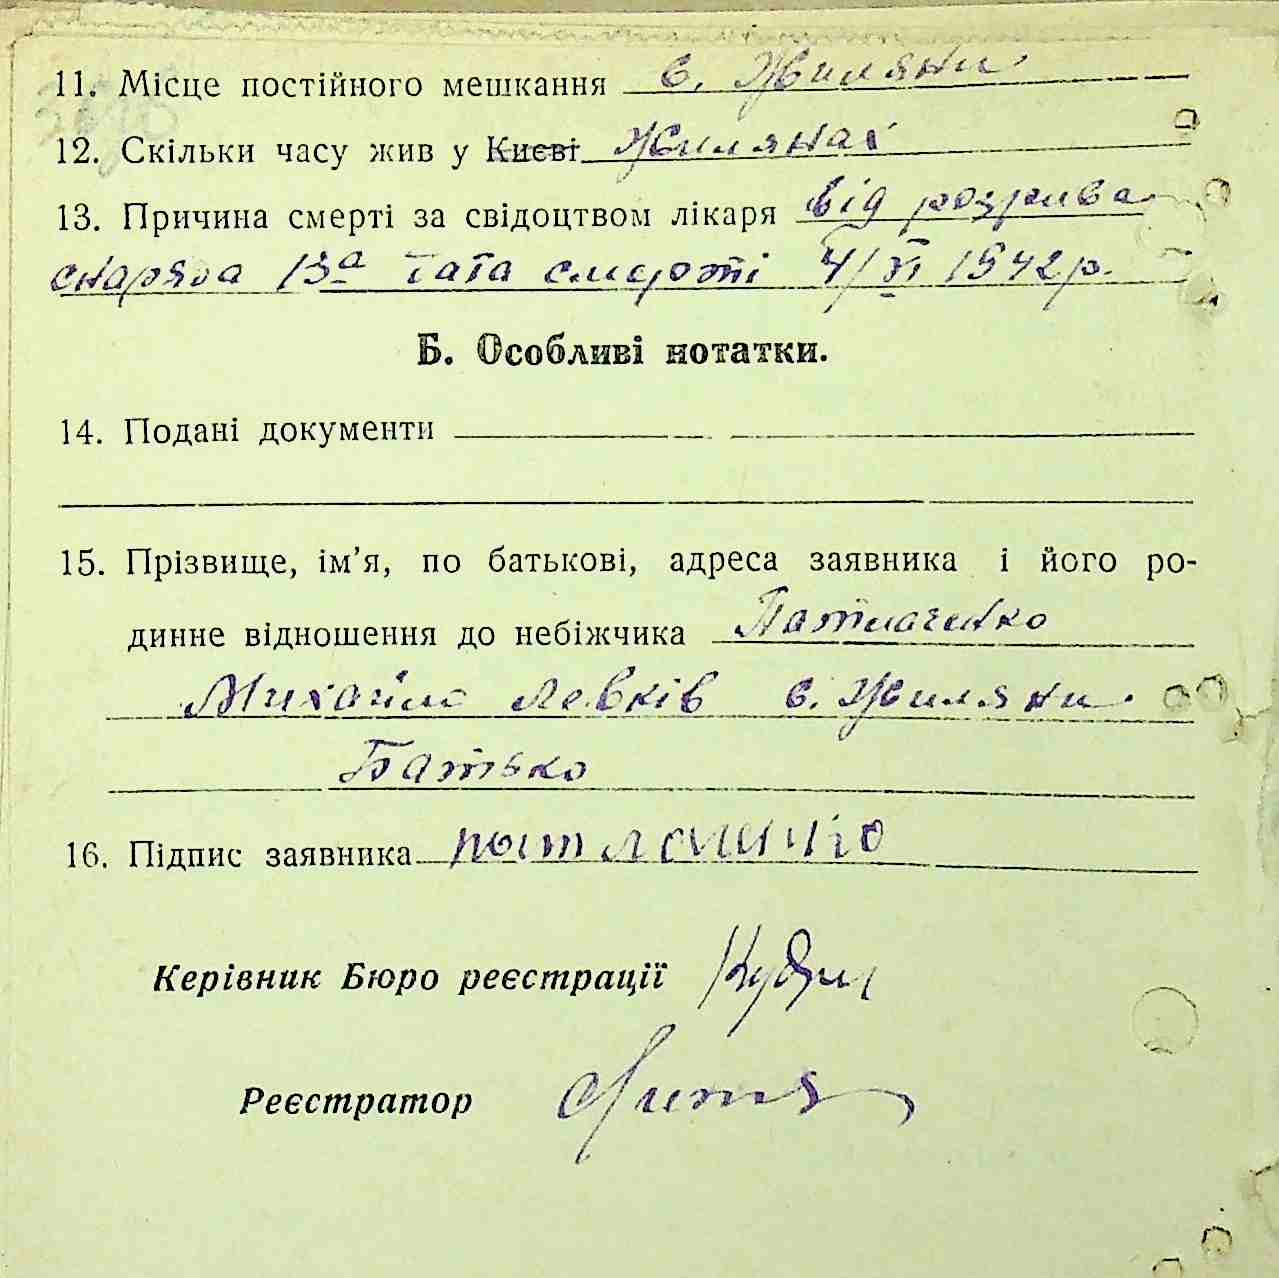 11. Місце постійного мешкання с. Жиляни
12. Скільки часу жив у Києві Жилянах
13. Причина смерті за свідоцтвом лікаря від розрива
снаряда 13а Тата смерті 4/VI 1942 р.
Б. Особливі нотатки.
14. Подані документи
15. Прізвище, ім’я, по батькові, адреса заявника і його ро-
динне відношення до небіжчика Патлаченко
Михайло Левків с. Жиляни.
Батько
16. Підпис заявника
Керівник Бюро реєстрації
Реєстратор